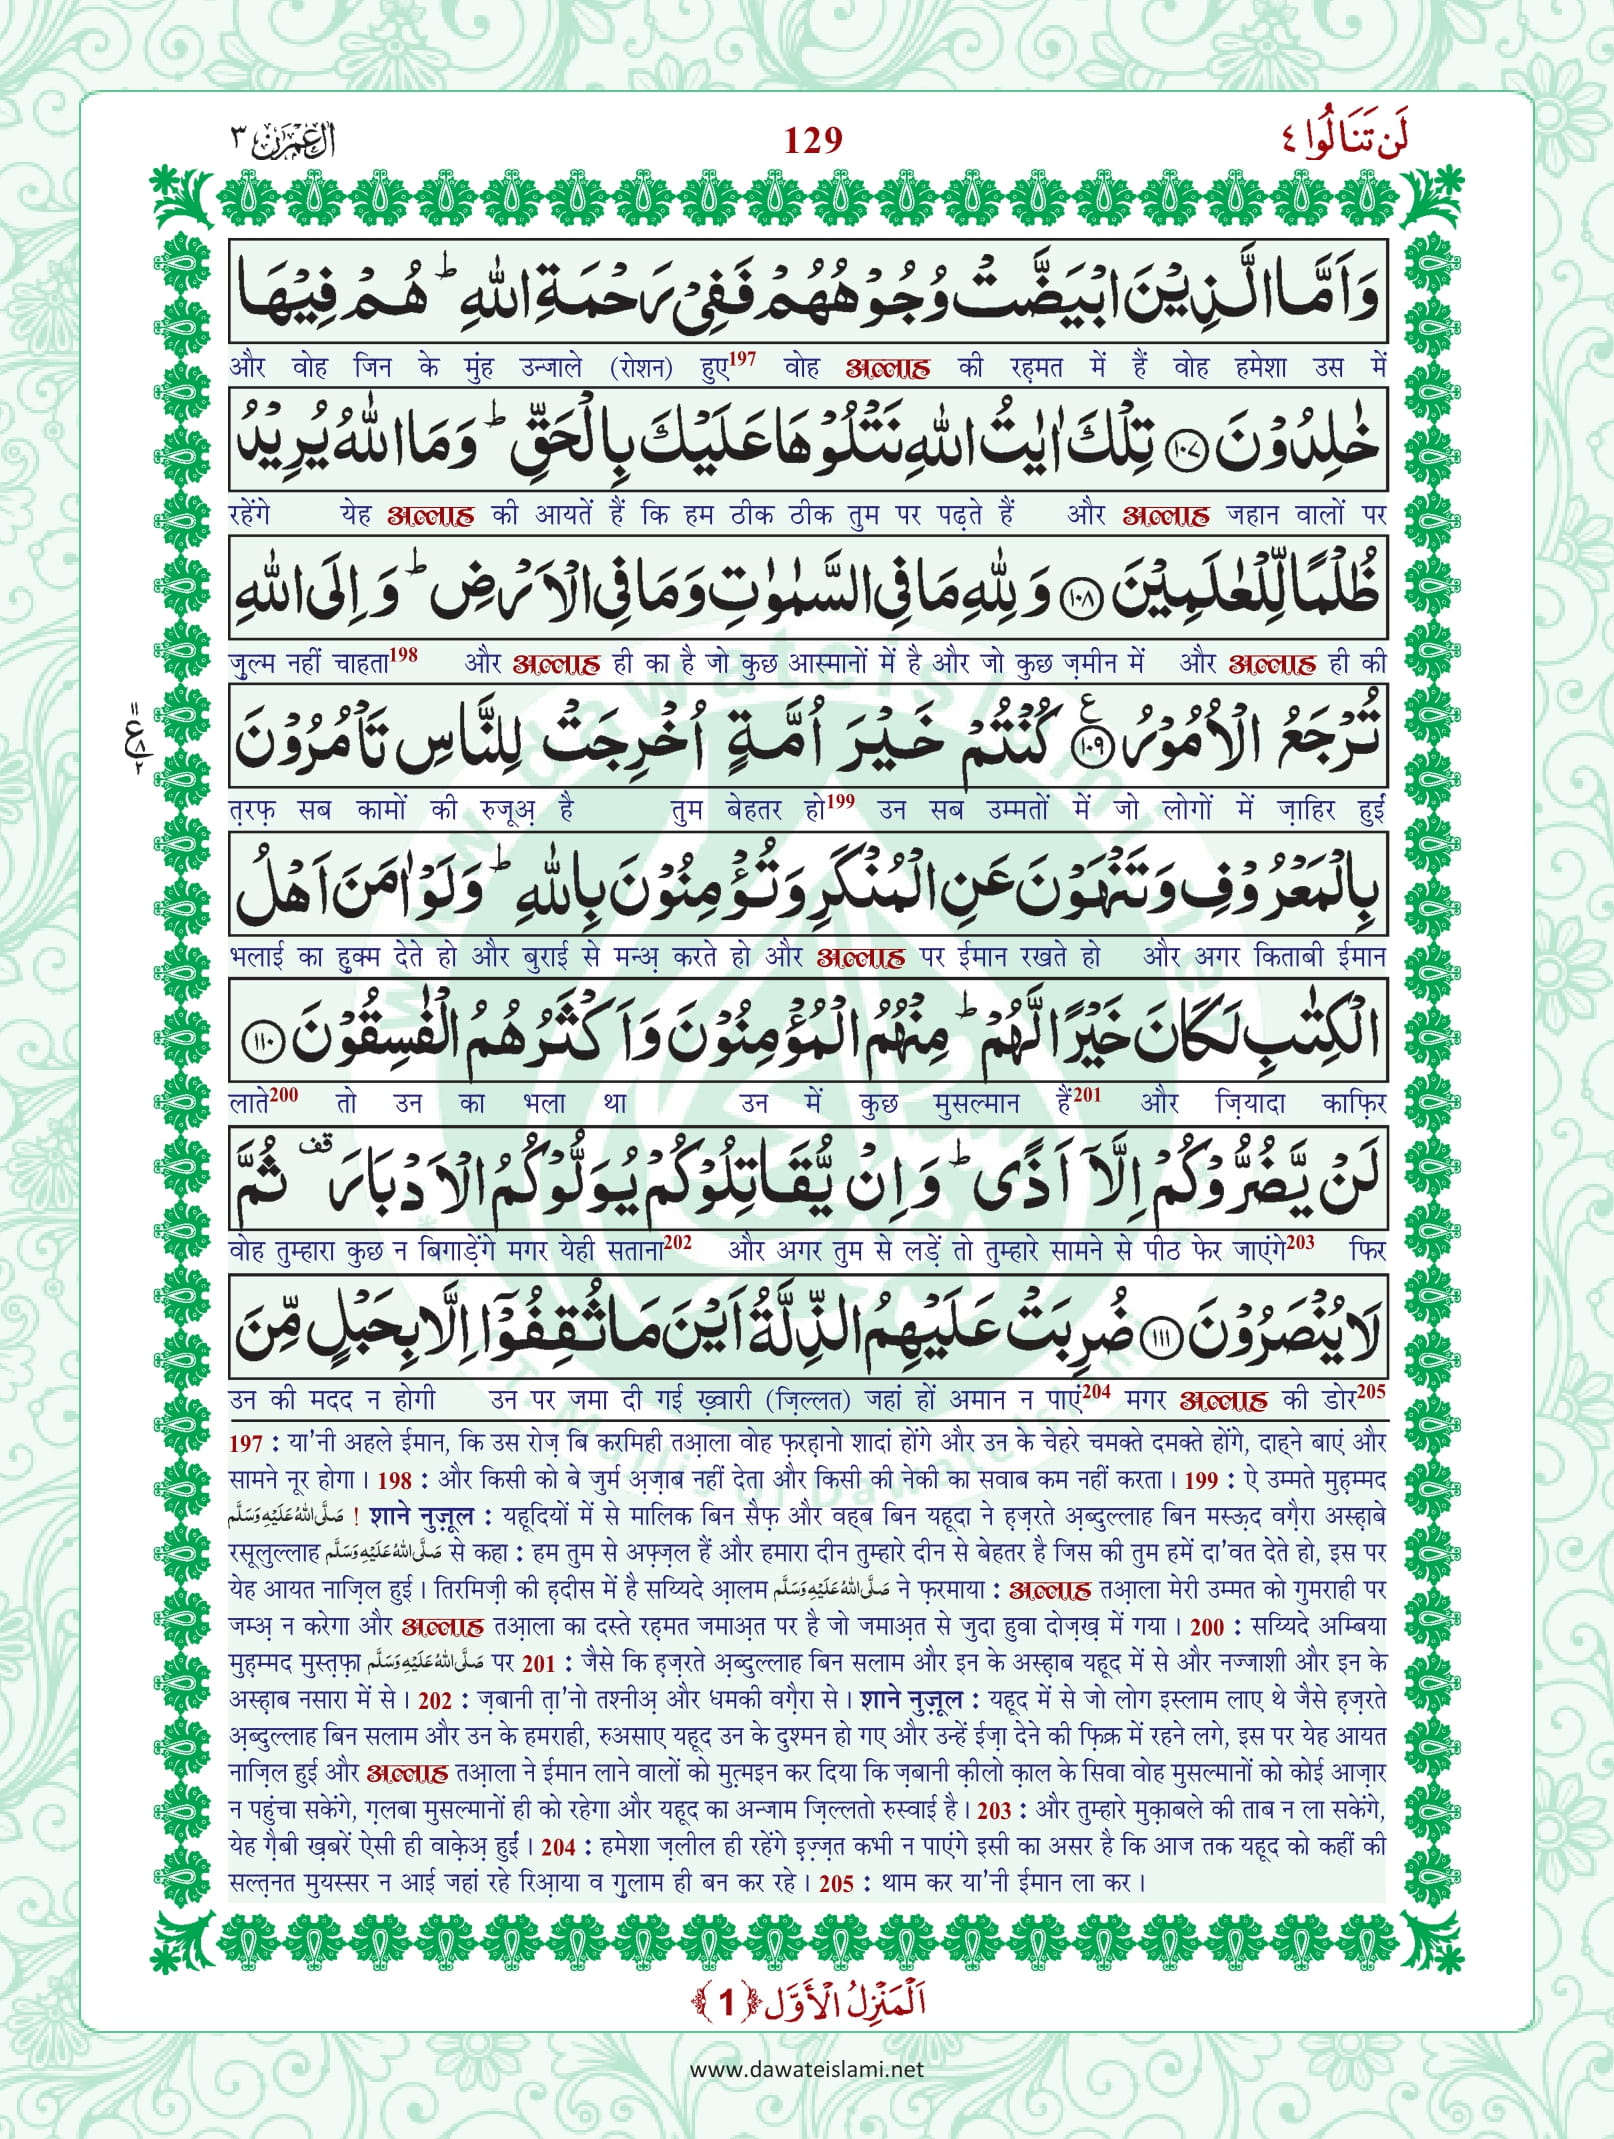 لَنْ تَنَالُوا ٤
129
اٰلِ عِمْرٰن ٣
وَاَمَّا الَّذِيْنَ ابْيَضَّتْ وُجُوْهُهُمْ فَفِيْ رَحْمَةِ اللّٰهِ ؕ هُمْ فِيْهَا
और वोह जिन के मुंह उन्जाले (रोशन) हुए197 वोह अल्लाह की रह़मत में हैं वोह हमेशा उस में
خٰلِدُوْنَ ﴿١٠٧﴾ تِلْكَ اٰيٰتُ اللّٰهِ نَتْلُوْهَا عَلَيْكَ بِالْحَقِّ ؕ وَمَا اللّٰهُ يُرِيْدُ
रहेंगे येह अल्लाह की आयतें हैं कि हम ठीक ठीक तुम पर पढ़ते हैं और अल्लाह जहान वालों पर
ظُلْمًا لِّلْعٰلَمِيْنَ ﴿١٠٨﴾ وَلِلّٰهِ مَا فِي السَّمٰوٰتِ وَمَا فِي الْاَرْضِ ؕ وَاِلَى اللّٰهِ
ज़ुल्म नहीं चाहता198 और अल्लाह ही का है जो कुछ आस्मानों में है और जो कुछ ज़मीन में और अल्लाह ही की
تُرْجَعُ الْاُمُوْرُ ﴿١٠٩﴾ ع كُنْتُمْ خَيْرَ اُمَّةٍ اُخْرِجَتْ لِلنَّاسِ تَاْمُرُوْنَ
त़रफ़ सब कामों की रुजूअ़ है तुम बेहतर हो199 उन सब उम्मतों में जो लोगों में ज़ाहिर हुईं
بِالْمَعْرُوْفِ وَتَنْهَوْنَ عَنِ الْمُنْكَرِ وَتُؤْمِنُوْنَ بِاللّٰهِ ؕ وَلَوْ اٰمَنَ اَهْلُ
भलाई का हुक्म देते हो और बुराई से मन्अ़ करते हो और अल्लाह पर ईमान रखते हो और अगर किताबी ईमान
الْكِتٰبِ لَكَانَ خَيْرًا لَّهُمْ ؕ مِنْهُمُ الْمُؤْمِنُوْنَ وَاَكْثَرُهُمُ الْفٰسِقُوْنَ ﴿١١٠﴾
लाते200 तो उन का भला था उन में कुछ मुसल्मान हैं201 और ज़ियादा काफ़िर
لَنْ يَّضُرُّوْكُمْ اِلَّاۤ اَذًى ؕ وَاِنْ يُّقَاتِلُوْكُمْ يُوَلُّوْكُمُ الْاَدْبَارَ قف ثُمَّ
वोह तुम्हारा कुछ न बिगाड़ेंगे मगर येही सताना202 और अगर तुम से लड़ें तो तुम्हारे सामने से पीठ फेर जाएंगे203 फिर
لَا يُنْصَرُوْنَ ﴿١١١﴾ ضُرِبَتْ عَلَيْهِمُ الذِّلَّةُ اَيْنَ مَا ثُقِفُوْۤا اِلَّا بِحَبْلٍ مِّنَ
उन की मदद न होगी उन पर जमा दी गई ख़्वारी (ज़िल्लत) जहां हों अमान न पाएं204 मगर अल्लाह की डोर205
197 : या'नी अहले ईमान, कि उस रोज़ बि करमिही तआ़ला वोह फ़रह़ानो शादां होंगे और उन के चेहरे चमक्ते दमक्ते होंगे, दाहने बाएं और
सामने नूर होगा। 198 : और किसी को बे जुर्म अ़ज़ाब नहीं देता और किसी की नेकी का सवाब कम नहीं करता। 199 : ऐ उम्मते मुह़म्मद
صَلَّى اللّٰهُ عَلَيْهِ وَسَلَّم ! शाने नुज़ूल : यहूदियों में से मालिक बिन सैफ़ और वह्ब बिन यहूदा ने ह़ज़रते अ़ब्दुल्लाह बिन मस्ऊ़द वग़ैरा अस्ह़ाबे
रसूलुल्लाह صَلَّى اللّٰهُ عَلَيْهِ وَسَلَّم से कहा : हम तुम से अफ़्ज़ल हैं और हमारा दीन तुम्हारे दीन से बेहतर है जिस की तुम हमें दा'वत देते हो, इस पर
येह आयत नाज़िल हुई। तिरमिज़ी की ह़दीस में है सय्यिदे आ़लम صَلَّى اللّٰهُ عَلَيْهِ وَسَلَّم ने फ़रमाया : अल्लाह तआ़ला मेरी उम्मत को गुमराही पर
जम्अ़ न करेगा और अल्लाह तआ़ला का दस्ते रह़मत जमाअ़त पर है जो जमाअ़त से जुदा हुवा दोज़ख़ में गया। 200 : सय्यिदे अम्बिया
मुह़म्मद मुस्त़फ़ा صَلَّى اللّٰهُ عَلَيْهِ وَسَلَّم पर 201 : जैसे कि ह़ज़रते अ़ब्दुल्लाह बिन सलाम और इन के अस्ह़ाब यहूद में से और नज्जाशी और इन के
अस्ह़ाब नसारा में से। 202 : ज़बानी त़ा'नो तश्नीअ़ और धमकी वग़ैरा से। शाने नुज़ूल : यहूद में से जो लोग इस्लाम लाए थे जैसे ह़ज़रते
अ़ब्दुल्लाह बिन सलाम और उन के हमराही, रुअसाए यहूद उन के दुश्मन हो गए और उन्हें ईज़ा देने की फ़िक्र में रहने लगे, इस पर येह आयत
नाज़िल हुई और अल्लाह तआ़ला ने ईमान लाने वालों को मुत़्मइन कर दिया कि ज़बानी क़ीलो क़ाल के सिवा वोह मुसल्मानों को कोई आज़ार
न पहुंचा सकेंगे, ग़लबा मुसल्मानों ही को रहेगा और यहूद का अन्जाम ज़िल्लतो रुस्वाई है। 203 : और तुम्हारे मुक़ाबले की ताब न ला सकेंगे,
येह ग़ैबी ख़बरें ऐसी ही वाक़ेअ़ हुईं। 204 : हमेशा ज़लील ही रहेंगे इ़ज़्ज़त कभी न पाएंगे इसी का असर है कि आज तक यहूद को कहीं की
सल्त़नत मुयस्सर न आई जहां रहे रिआ़या व ग़ुलाम ही बन कर रहे। 205 : थाम कर या'नी ईमान ला कर।
اَلْمَنْزِلُ الْاَوَّل ﴿1﴾
www.dawateislami.net